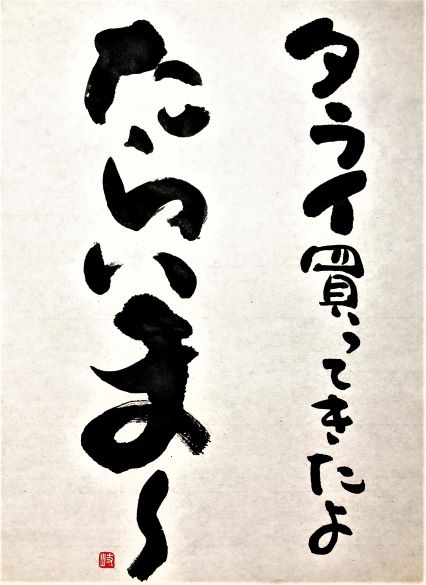 タライ買ってきたよ
たらいま〜